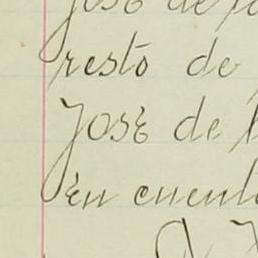 José de
resto de
José de
En cuent